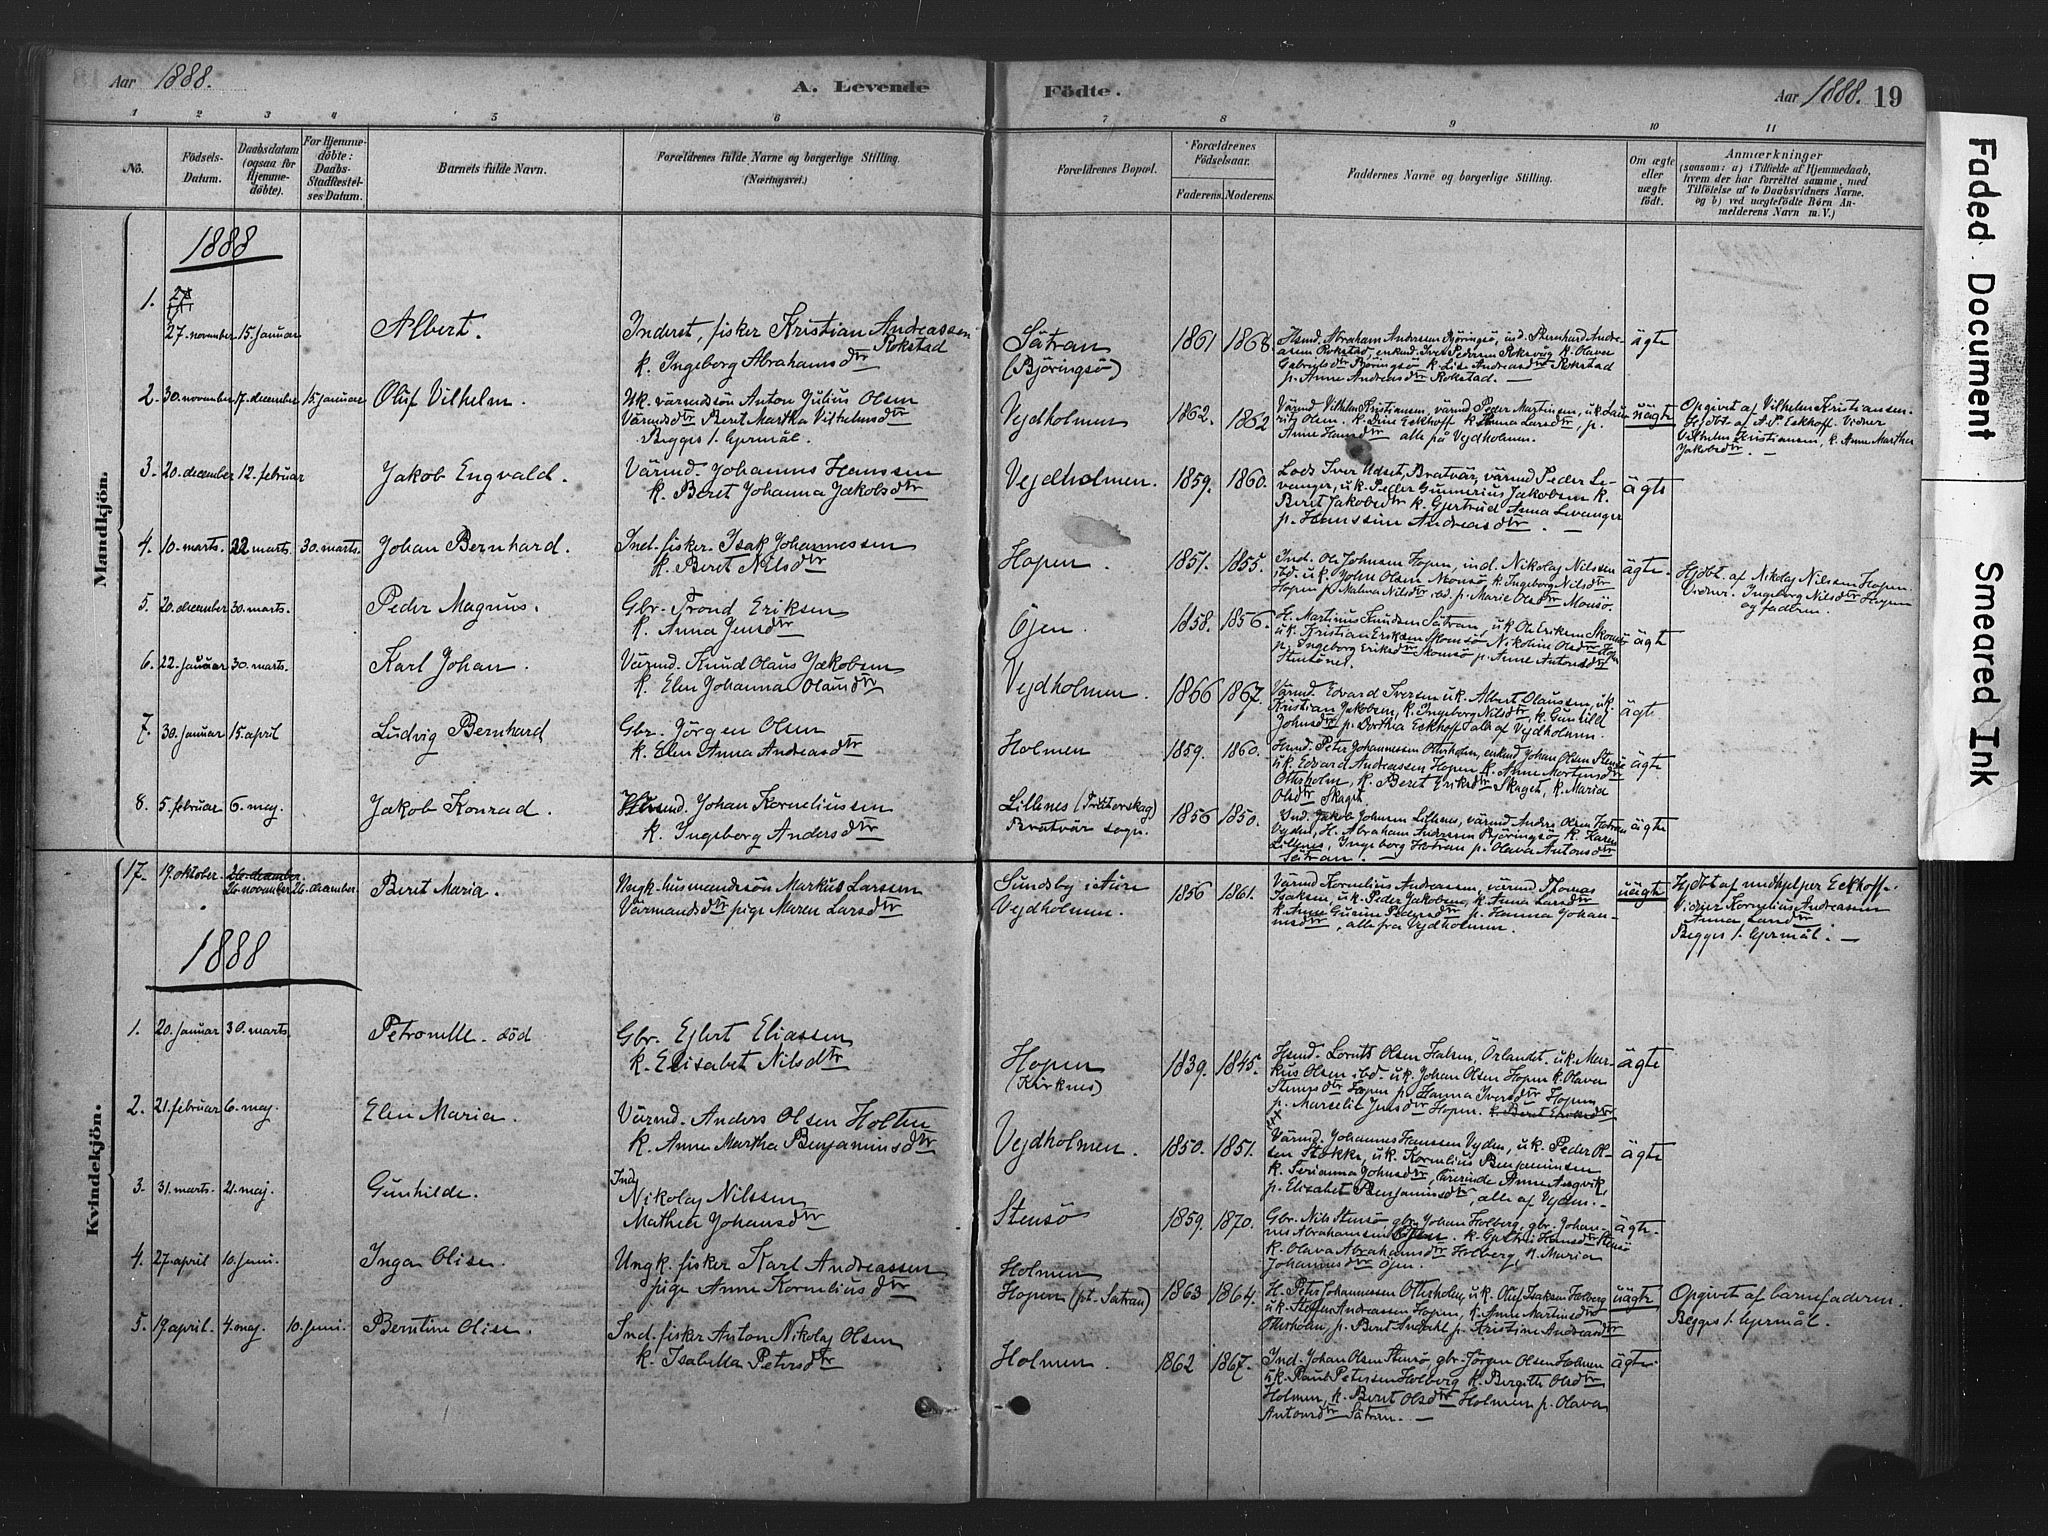 Aar 1888.
A. Levende
Födte.
Aar 1888. 19
1 2 3 4 5 6 7 8 9 10 11
No.
Födsels-
Datum.
Daabsdatum
(ogsaa for
Hjemme-
döbte).
For Hjemme-
döbte:
Daabs-
Stadfæstel-
ses Datum.
Barnets fulde Navn.
Forældrenes fulde Navne og borgerlige Stilling.
(Næringsvei.)
Forældrenes Bopæl.
Forældrenes
Födselsaar.
Faderens. Moderens.
Faddernes Navne og borgerlige Stilling.
Om ægte
eller
uægte
födt.
Anmærkninger
(saasom: a) i Tilfælde af Hjemmedaab,
hvem der har forrettet samme, med
Tilföielse af to Daabsvidners Navne.
og b) ved uægtefödte Börn An-
melderens Navn m. V.)
Mandkjön.
1888
1.
27. november 15. januar Albert. Inderst, fisker Kristian Andreassen
Rokstad
k. Ingeborg Abrahamsdtr
Sätran
(Björingsö)
1861 1868.
Husmd. Abraham Andersen Björingsö, ind. Bernhard Andre-
asen Rokstad, enkmd. Iver Pedersen Roksvåg k. Olava
Gabrielsdtr Björingsö k. Lise Andreasdtr Rokstad
p. Anne Andreasdtr Rokstad. —
ägte
2. 30. november 17. december 15. januar Oluf Vilhelm. Uk. värmdsön Anton Julius Olsen
Värmdsdtr Beret Martha Vilhelmsdtr
Begges 1. lejermål.
Vejdholmen 1862. 1862
Värmd. Vilhelm Kristiansen, värmd Peder Martinsen, uk. Lau-
ritz Olsen. k. Line Eckhoff k. Anna Larsdtr, p.
Anne Hansdtr alle på Vejdholmen.
uägte
Opgivet af Vilhelm Kristiansen.
Hjdbt af A. P. Eckhoff. Vidner
Vilhelm Kristiansen, k. Anne Marthe
Jakobsdtr. —
3. 20. december 12. februar Jakob Engvald. Värmd. Johannes Hanssen
k. Beret Johanna Jakobsdtr
Vejdholmen. 1859. 1860.
Lods Iver Udset, Bratvär, värmd Peder Le-
vanger, uk. Peder Gunnerius Jakobsen k.
Beret Jakobsdtr k. Gjertrud Anna Levanger
p. Hanssine Andreasdtr. —
ägte
4. 10. marts. 22 marts. 30. marts. Johan Bernhard. Ind. fisker. Isak Johannessen
k. Beret Nilsdtr
Hopen. 1851. 1855.
Ind. Ole Johnsen Hopen, ind. Nikolaj Nilssen
ibd. uk. John Olsen Monsö k. Ingeborg Nilsdtr
Hopen p. Malena Nilsdtr ibd. p. Marie Olsdtr Monsö.
ägte.
Hjdbt. af Nikolaj Nilssen Hopen.
Vidner. Ingeborg Nilsdtr Hopen
og faderen.
5. 20. december 30. marts. Peder Magnus. Gbr. Trond Eriksen
k. Anna Jensdtr
Öjen. 1858. 1856.
H. Martinus Knudsen Sätran, uk. Ole Eriksen Skomsö
uk. Kristian Eriksen Skomsö Nikoline Olsdtr
p. Ingeborg Eriksdtr Skomsö p. Anne Antonsdtr
Stensönes.
ägte
6. 22. januar 30. marts. Karl Johan. Värmd. Knud Olaus Jakobsen
k. Elen Johanna Olausdtr
Vejdholmen. 1866 1867.
Värmd. Edvard Iversen uk. Albert Olaussen, uk.
Kristian Jakobsen, k. Ingeborg Nilsdtr k. Gunhild
Johnsdtr p. Dorthea Eckhoff alle af Vejdholmen.
ägte
7. 30. januar 15. april Ludvig Bernhard Gbr. Jörgen Olsen
k. Elen Anna Andreasdtr
Holmen 1859. 1860.
Husmd. Peter Johannessen Otterholm, enkmd Johan Olsen Stensö
uk. Edvard Andreassen Hopen k. Anne Martinsdtr
Otterholm, k. Beret Eriksdtr Skaget, k. Maria
Olsdtr Skaget.
ägte.
8. 5. februar 6. maj. Jakob Konrad. Husmd. Johan Korneliussen
k. Ingeborg Andersdtr
Lillenes
Bratvär sogn. 1856 1850.
Ind. Jakob Johnsen Lillenes, värmd Anders Olsen Hatran
Vejden, H. Abraham Andersen Björingsö k. Karen
Lillenes, Ingeborg Hatran p. Olava Antonsdtr
Sätran. —
ägte
Kvindekjön.
17. 19. oktober. 26. december. 26. november 26. december. Beret Maria. Ungk. husmandssön Markus Larssen
Värmandsdtr pige Maren Larsdtr
Sundsby i Aure
Vejdholmen. 1856 1861.
Värmd Kornelius Andreassen, värmd Thomas
Isaksen, uk. Peder Jakobsen, k. Anna Larsdtr
k. Anne Gurine Pedersdtr p. Hanna Johan-
nesdtr, alle fra Vejdholmen.
uägte
Hjdbt af medhjelper Eckhoff.
Vidner Kornelius Andreassen
Anna Larsdtr
Begges 1. lejermål. —
1888
1. 20. januar 30. marts. Petronelle. död Gbr. Ejlert Eliassen
k. Elisabet Nilsdtr
Hopen
(Kirknes) 1839. 1845.
Husmd. Lornts Olsen Halsen, Örlandet. uk. Mar-
kus Olsen ibd. uk. Johan Olsen Hopen k. Olava
Hopen p. Hanna Iversdtr Hopen
p. Marselie Jensdtr Hopen.
ägte
2. 21. februar 6. maj. Elen Maria. Värmd. Anders Olsen Holten
k. Anne Martha Benjaminsdtr
Vejdholmen. 1850. 1851.
Värmd. Johannes Hanssen Vejden, uk. Peder Ol-
sen Stokke, uk. Kornelius Benjaminsen
k. Serianna Johnsdtr, lärerinde Anne Aagvik,
p. Elisabet Benjaminsdtr, alle af Vejden. —
ägte
3. 31. marts. 21. maj. Gunhilde. Ind
Nikolaj Nilssen
Mathea Johansdtr
Stensö 1859. 1870.
Gbr. Nils Stensö gbr. Johan Holberg, gbr. Johan-
nes Abrahamsen Öjen. k. Hansdtr Stensö
k. Olava Abrahamsdtr Holberg, k. Maria
Johannesdtr Öjen.
ägte.
4. 27. april 10. juni. Inga Olise. Ungk. fisker Karl Andreassen
pige Anne Korneliusdtr
Holmen
Hopen (pt. Satran) 1863 1864.
H. Peter Johannessen Otterholm, uk. Oluf Isaksen Holberg
uk. Steffen Andreassen Hopen, k. Anne Martinsdtr
Otterholm, p. Beret Andahl p. Kristine Andreasdtr
uägte
Opgivet af barnefaderen.
Begges 1. lejermål.
5. 19. april. 4. maj 10. juni. Berntine Olise. Ind. fisker Anton Nikolaj Olsen
k. Isabella Petersdtr
Holmen. 1862 1867.
Ind. Johan Olsen Stensö, gbr. Jörgen Olsen Holmen
uk. Paul Petersen Holberg k. Bergitte Olsdtr
Holmen, k. Beret Olsdtr Holmen p. Olava
Antonsdtr Sätran. —
ägte.
Faded Document
Smeared Ink